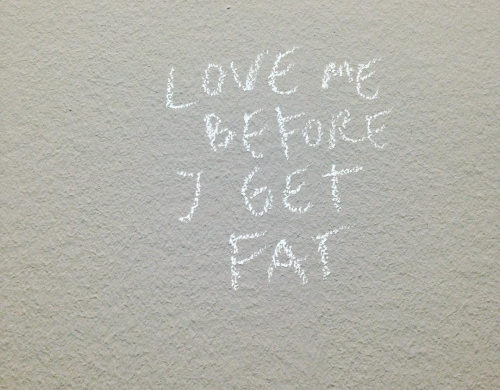 LOVE ME
BEFORE
I GET
FAT